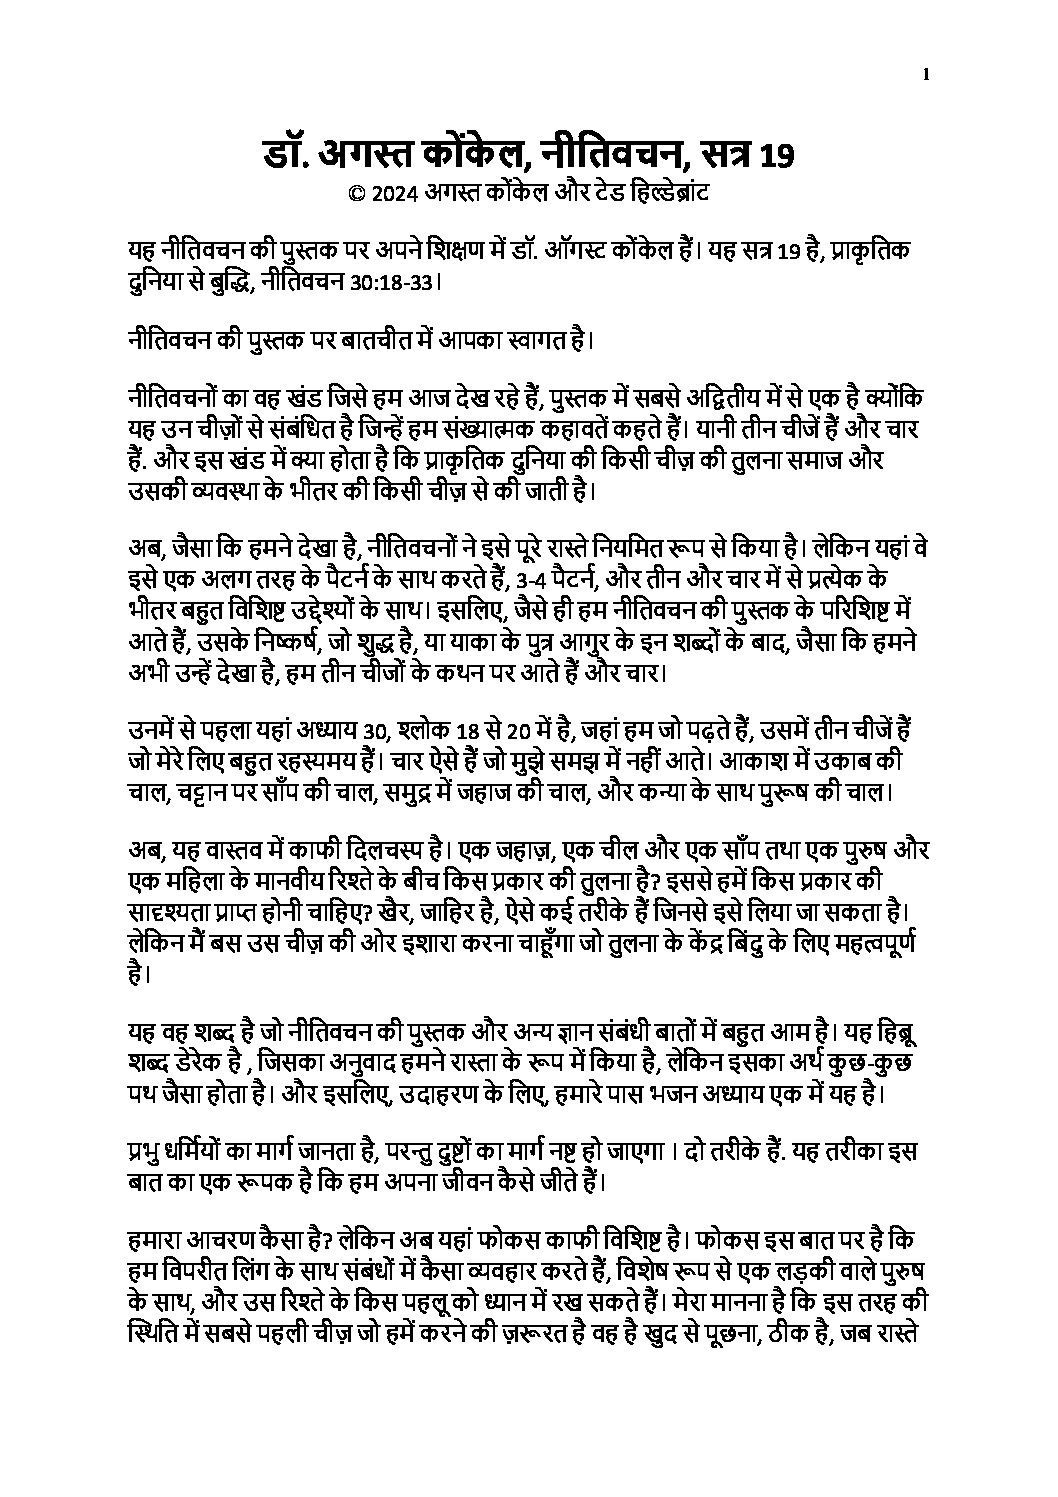 1
डॉ. अगस्त कोंकेल, नीतिवचन, सत्र 19
© 2024 अगस्त कोंकेल और टेड हिल्डेब्रांट
यह नीतिवचन की पुस्तक पर अपने शिक्षण में डॉ. ऑगस्ट कोंकेल हैं। यह सत्र 19 है, प्राकृतिक
दुनिया से बुद्धि, नीतिवचन 30:18-33।
नीतिवचन की पुस्तक पर बातचीत में आपका स्वागत है।
नीतिवचनों का वह खंड जिसे हम आज देख रहे हैं, पुस्तक में सबसे अद्वितीय में से एक है क्योंकि
यह उन चीज़ों से संबंधित है जिन्हें हम संख्यात्मक कहावतें कहते हैं। यानी तीन चीजें हैं और चार
हैं. और इस खंड में क्या होता है कि प्राकृतिक दुनिया की किसी चीज़ की तुलना समाज और
उसकी व्यवस्था के भीतर की किसी चीज़ से की जाती है।
अब, जैसा कि हमने देखा है, नीतिवचनों ने इसे पूरे रास्ते नियमित रूप से किया है। लेकिन यहां वे
इसे एक अलग तरह के पैटर्न के साथ करते हैं, 3-4 पैटर्न, और तीन और चार में से प्रत्येक के
भीतर बहुत विशिष्ट उद्देश्यों के साथ। इसलिए, जैसे ही हम नीतिवचन की पुस्तक के परिशिष्ट में
आते हैं, उसके निष्कर्ष, जो शुद्ध है, या याका के पुत्र आगुर के इन शब्दों के बाद, जैसा कि हमने
अभी उन्हें देखा है, हम तीन चीजों के कथन पर आते हैं और चार।
उनमें से पहला यहां अध्याय 30, श्लोक 18 से 20 में है, जहां हम जो पढ़ते हैं, उसमें तीन चीजें हैं
जो मेरे लिए बहुत रहस्यमय हैं। चार ऐसे हैं जो मुझे समझ में नहीं आते। आकाश में उकाब की
चाल, चट्टान पर साँप की चाल, समुद्र में जहाज की चाल, और कन्या के साथ पुरूष की चाल।
अब, यह वास्तव में काफी दिलचस्प है। एक जहाज़, एक चील और एक साँप तथा एक पुरुष और
एक महिला के मानवीय रिश्ते के बीच किस प्रकार की तुलना है? इससे हमें किस प्रकार की
सादृश्यता प्राप्त होनी चाहिए? खैर, जाहिर है, ऐसे कई तरीके हैं जिनसे इसे लिया जा सकता है।
लेकिन मैं बस उस चीज़ की ओर इशारा करना चाहूँगा जो तुलना के केंद्र बिंदु के लिए महत्वपूर्ण
है।
यह वह शब्द है जो नीतिवचन की पुस्तक और अन्य ज्ञान संबंधी बातों में बहुत आम है। यह हिब्रू
शब्द डेरेक है , जिसका अनुवाद हमने रास्ता के रूप में किया है, लेकिन इसका अर्थ कुछ-कुछ
पथ जैसा होता है। और इसलिए, उदाहरण के लिए, हमारे पास भजन अध्याय एक में यह है।
प्रभु धर्मियों का मार्ग जानता है, परन्तु दुष्टों का मार्ग नष्ट हो जाएगा । दो तरीके हैं. यह तरीका इस
बात का एक रूपक है कि हम अपना जीवन कैसे जीते हैं।
हमारा आचरण कैसा है? लेकिन अब यहां फोकस काफी विशिष्ट है। फोकस इस बात पर है कि
हम विपरीत लिंग के साथ संबंधों में कैसा व्यवहार करते हैं, विशेष रूप से एक लड़की वाले पुरुष
के साथ, और उस रिश्ते के किस पहलू को ध्यान में रख सकते हैं। मेरा मानना है कि इस तरह की
स्थिति में सबसे पहली चीज़ जो हमें करने की ज़रूरत है वह है खुद से पूछना, ठीक है, जब रास्ते